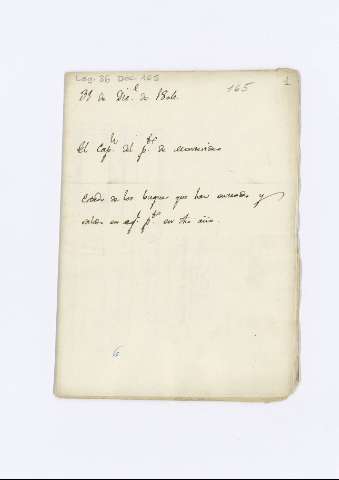 Leg. 36 Doc. 165
165
1
31 de Dic.e de 1804.
El Cap.n del p.to de Montevideo
Estado de los buques que han entrado y
salido en aql. p.to en dho año.
6